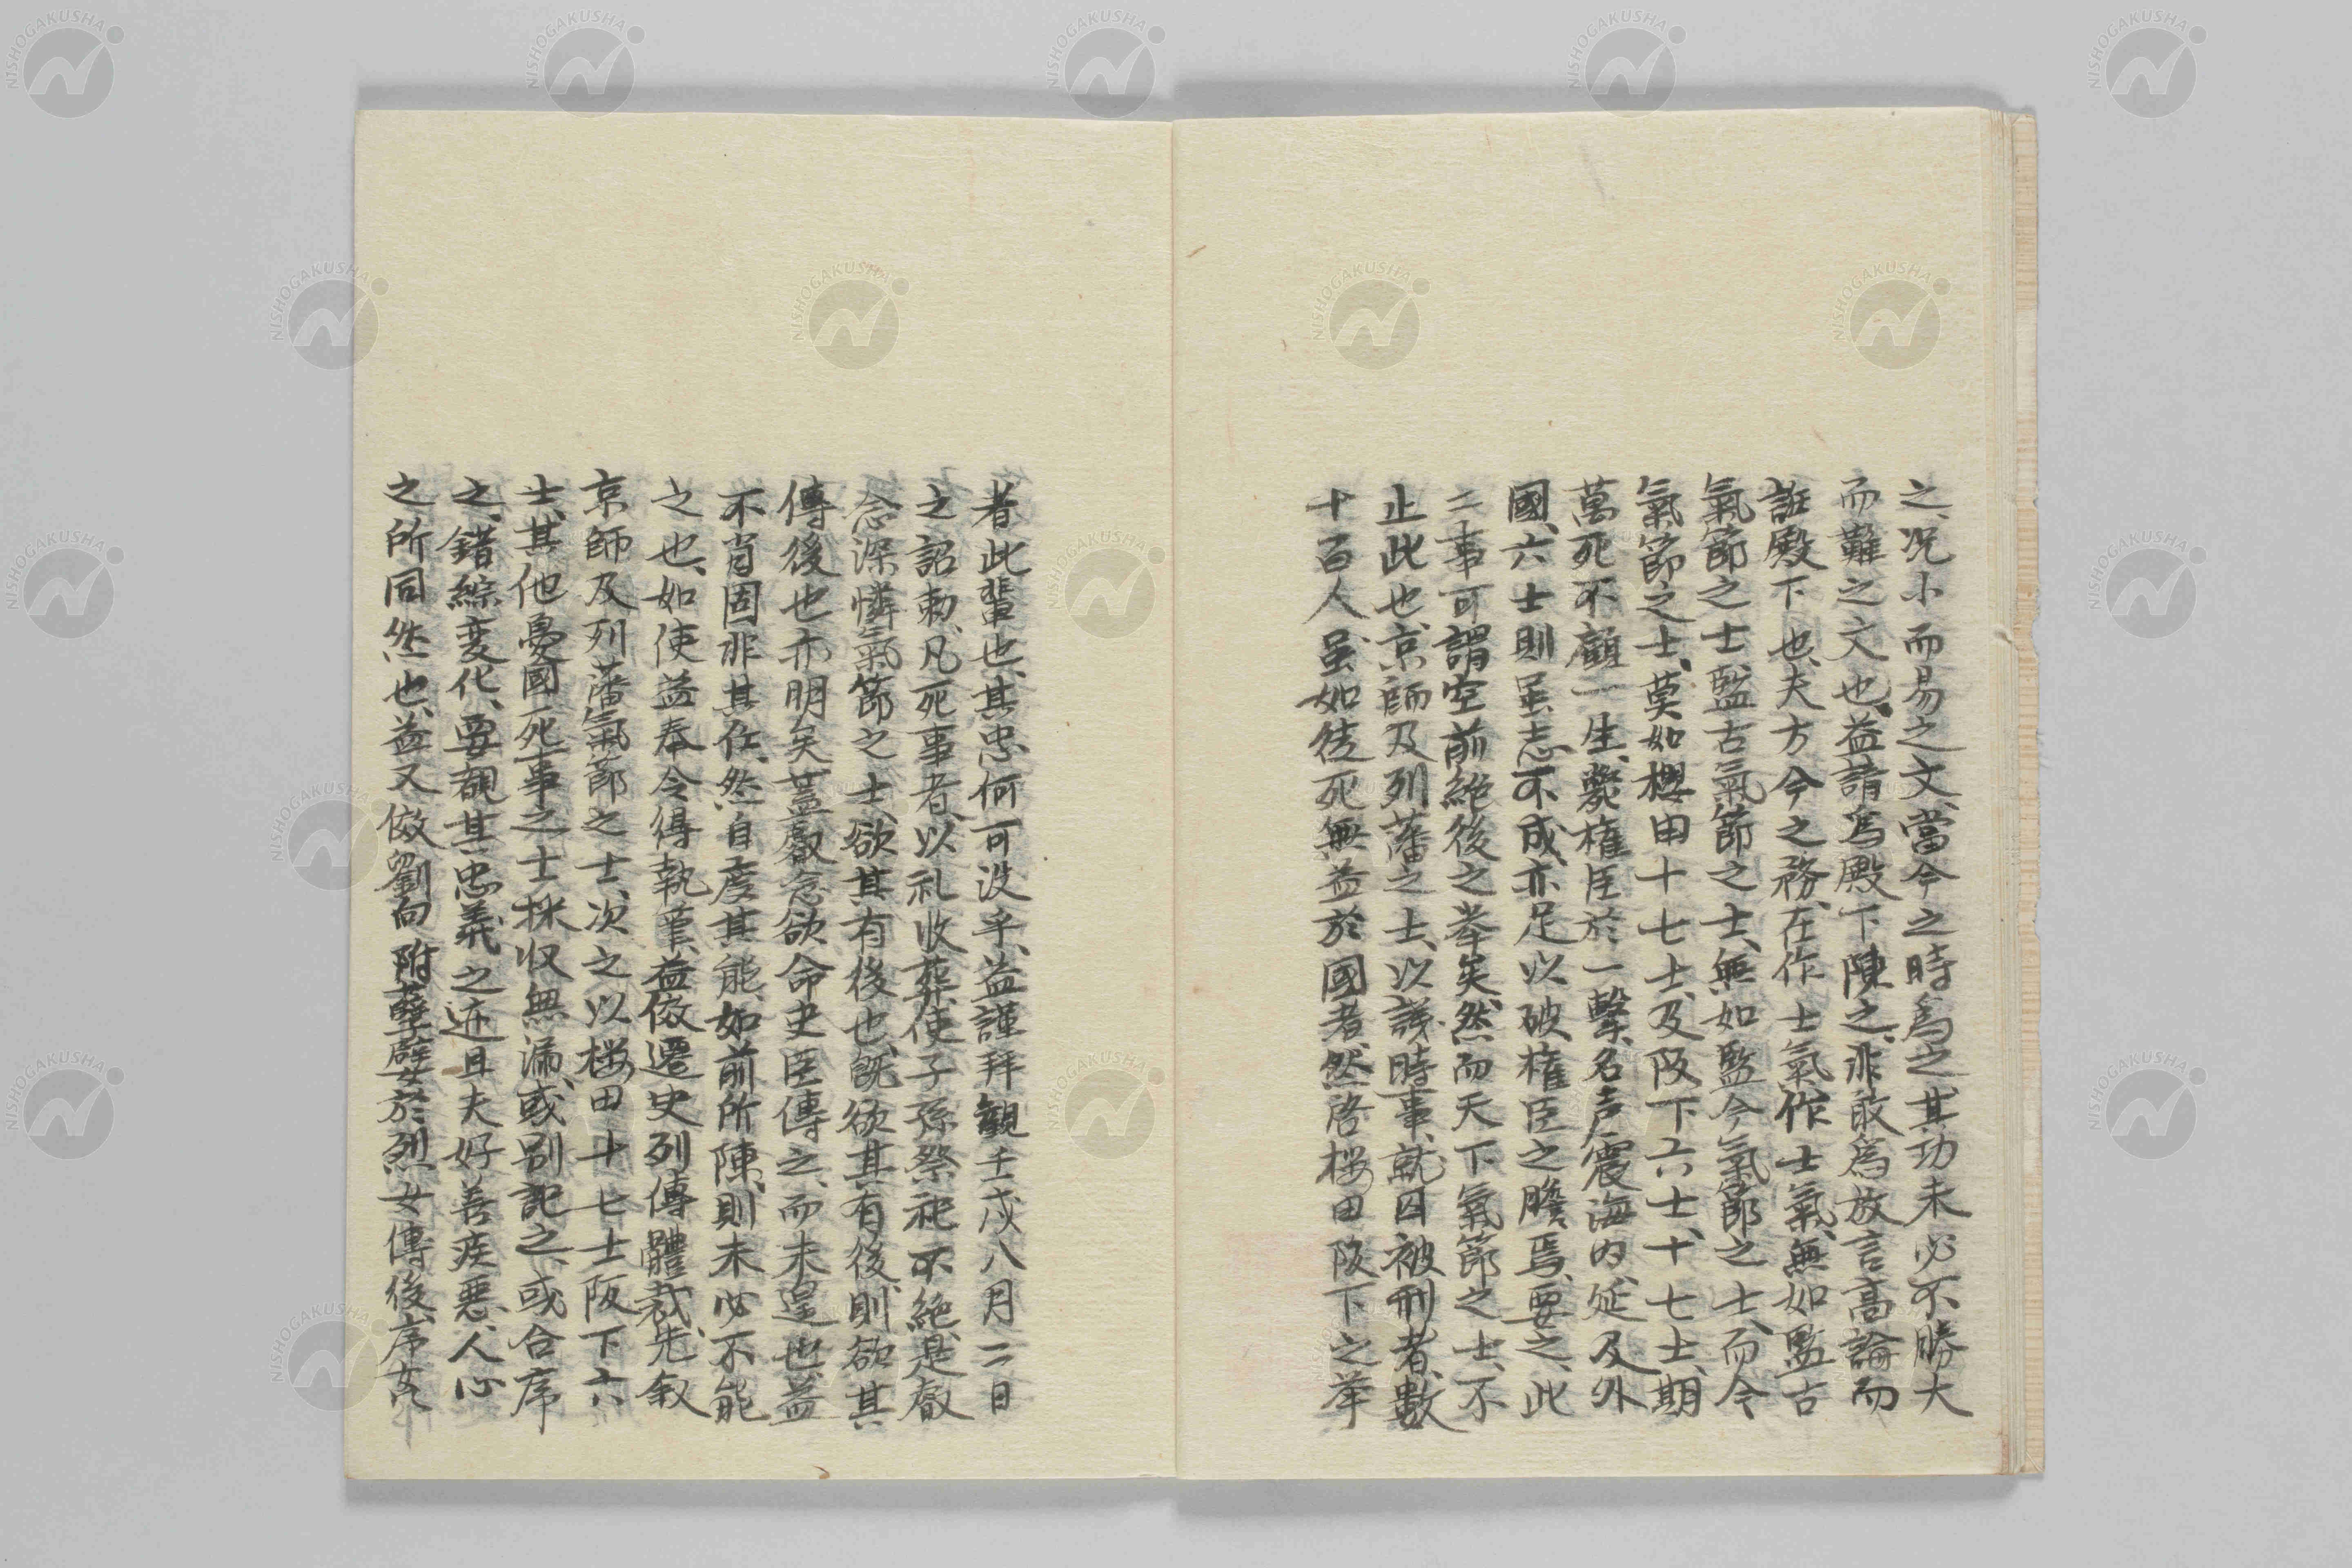 之、况小而易之文、當今之時爲之、其功未必不勝大
而難之文也、益請爲殿下陳之、非敢爲放言高論而
誑殿下也、夫方今之務、在作士氣、作士氣、無如監古
氣節之士、監古氣節之士、無如監今氣節之士、而今
氣節之士、莫如櫻田十七士、及阪下六士、十七士、期
萬死不顧一生、斃權臣於一擊、名声震海内、延及外
國、六士則虽志不成、亦足以破權臣之膽焉、要之、此
二事可謂空前絶後之举矣、然而天下氣節之士、不
止此也、京師及列藩之士、以議時事、就囚被刑者、數
十百人、虽如徒死無益於國者、然啓桜田阪下之举
者此輩也、其忠何可没乎、益謹拜觀壬戌八月二日
之詔勅、凡死事者、以礼收葬、使子孫祭祀不絶、是叡
念深憐氣節之士、欲其有後也、既欲其有後、則欲其
傳後也亦明矣、蓋叡念欲命史臣傳之、而未遑也、益
不肖固非其任、然自度其能、如前所陳、則未必不能
之也、如使益奉令得執筆、益倣遷史列傳體裁、先叙
京師及列藩氣節之士、次之以桜田十七士阪下六
士、其他憂國死事之士採収無漏、或别記之、或合序
之、錯綜変化、要覩其忠義之迹且夫好善疾悪、人心
之所同然也、益又倣劉向附孽嬖於烈女傳後、序女